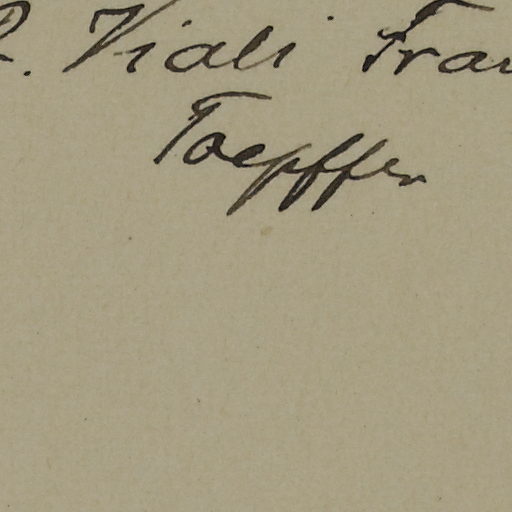 R. Viali Fran
Toepffer